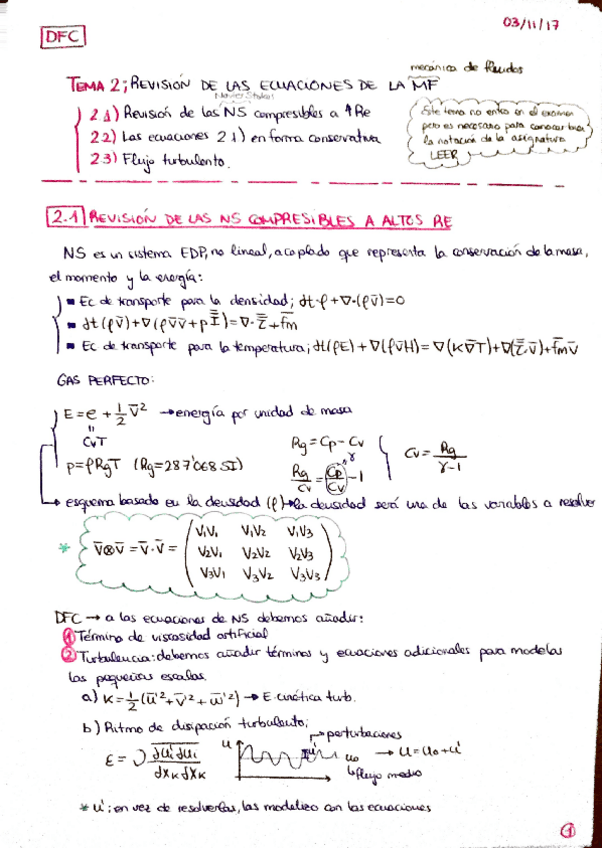 03/11/17
DFC
mecánica de fluidos
TEMA 2; REVISIÓN DE LAS ECUACIONES DE LA MF
Navier Stokes
2.1) Revisión de las NS compresibles a ↑Re
2.2) Las ecuaciones 2.1) en forma conservativa
2.3) Flujo turbulento.
Este tema no entra en el examen
pero es necesario para conocer bien
la notación de la asignatura
LEER
2.1 REVISIÓN DE LAS NS COMPRESIBLES A ALTOS RE
NS es un sistema EDP, no lineal, acoplado que representa la conservación de la masa,
el momento y la energía:
▪ Ec de transporte para la densidad; ∂t ρ + ∇·(ρv̅) = 0
▪ ∂t(ρv̅) + ∇(ρv̅v̅ + pI̿) = ∇·τ̿ + f̅m
▪ Ec de transporte para la temperatura; ∂t(ρE) + ∇(ρv̅H) = ∇(K∇̅T) + ∇(τ̿·v̅) + f̅m v̅
GAS PERFECTO:
E = e + 1/2 v̅² → energía por unidad de masa
"
CvT
p = ρRgT (Rg = 287'068 SI)
Rg = Cp - Cv
Rg/Cv = Cp/Cv - 1
γ
Cv = Rg/(γ-1)
→ esquema basado en la densidad (ρ) → la densidad será una de las variables a resolver
* v̅⊗v̅ = v̅·v̅ = ( V1V1 V1V2 V1V3
V2V1 V2V2 V2V3
V3V1 V3V2 V3V3 )
DFC → a las ecuaciones de NS debemos añadir:
① Término de viscosidad artificial
② Turbulencia: debemos añadir términos y ecuaciones adicionales para modelar
las pequeñas escalas.
a) K = 1/2 (u̅'² + v̅'² + w̅'²) → E. cinética turb.
b) Ritmo de disipación turbulento;
→ perturbaciones
ε = ν ∂u'i ∂u'i / ∂xK ∂xK
u
u'
u0
→ u = u0 + u'
↳ flujo medio
* u'; en vez de resolverlas, las modelizo con las ecuaciones
①